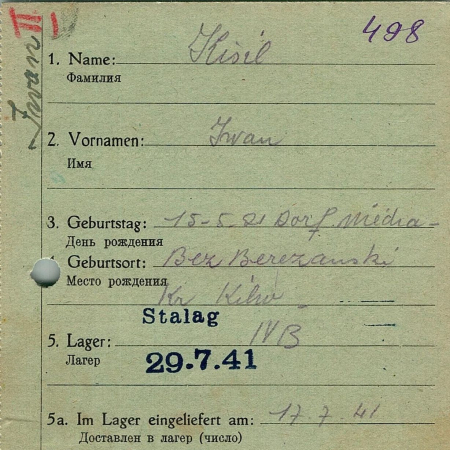 II I
Iwan
498
1. Name: Kisil
Фамилия
2. Vornamen: Iwan
Имя
3. Geburtstag: 15-5. 21 Dorf Midia-
День рождения
Geburtsort: Bez Berezanski
Место рождения
Kr Kiiw
Stalag
5. Lager: IVB
Лагер
29.7.41
5a. Im Lager eingeliefert am: 17. 7. 41
Доставлен в лагер (число)